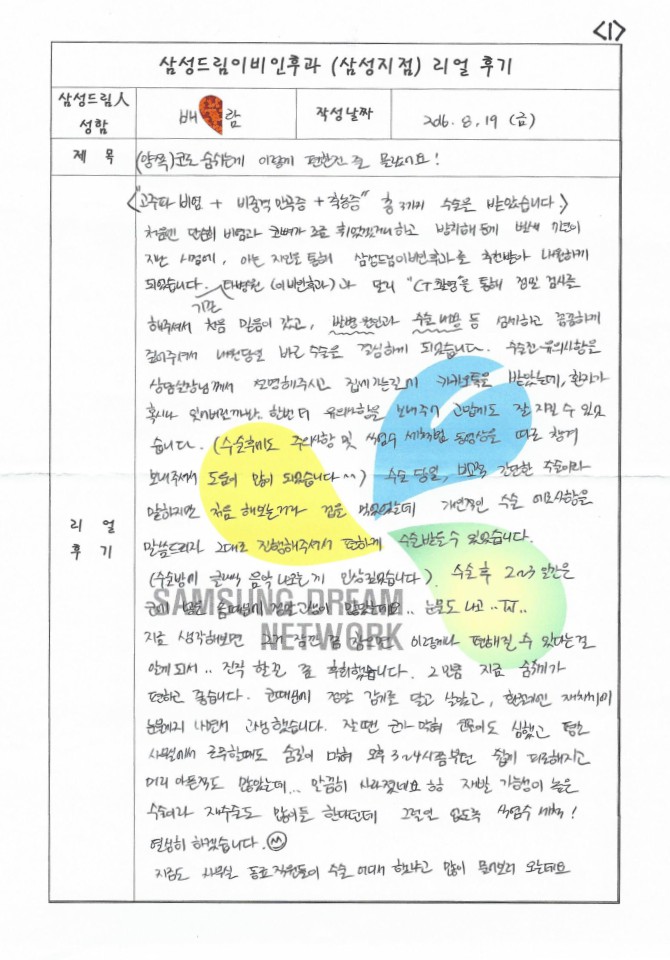 <1>
삼성드림이비인후과 (삼성지점) 리얼 후기
삼성드림人 성함
배 람
작성날짜
2016. 8. 19 (금)
제 목
(양쪽)코로 숨쉬는게 이렇게 편한건 줄 몰랐어요!
리 얼
후 기
<"고주파 비염 + 비중격 만곡증 + 축농증" 총 3가지 수술을 받았습니다.>
처음엔 단순히 비염과 코뼈가 조금 휘었겠거니하고 방치해 둔게
지난 시점에, 아는 지인을 통해 삼성드림이비인후과를 추천받아 내원하게
되었습니다. 타병원 (이비인후과)과 달리 "CT촬영"을 통해 정밀 검사를
기관
해주셔서 처음 믿음이 갔고, 발병 원인과 수술 방법 등 섬세하고 꼼꼼하게
짚어주셔서 내원당일 바로 수술을 결심하게 되었습니다. 수술전 유의사항을
상담실장님께서 설명해주시고 집에가는길에 카카오톡을 받았는데, 환자가
혹시나 잊어버릴까봐 한번 더 유의사항을 보내주어 고맙게도 잘 지킬 수 있었
습니다. (수술후에도 주의사항 및 식염수 세척법 동영상을 따로 챙겨
보내주셔서 도움이 많이 되었습니다 ^^) 수술 당일, 비교적 간단한 수술이라
말하지만 처음 해보는거라 겁을 먹었었는데 개인적인 수술 이모사항을
말씀드리자 그대로 진행해주셔서 편하게 수술받을 수 있었습니다.
(수술방에 클래식 음악 나오는게 인상깊었습니다). 수술 후 2~3일간은
코에 넣은 솜때문에 정말 고생이 많았는데요.. 눈물도 나고 ..ㅠ..
SAMSUNG DREAM
NETWORK
지금 생각해보면 그거 잠깐 참으면 이렇게나 편해질 수 있다는걸
알게 되서.. 진작 할껄 하고 후회했습니다. 그만큼 지금 숨쉬기가
편하고 좋습니다. 코때문에 정말 감기를 달고 살았고, 환절기엔 재채기에
눈물까지 나면서 고생했습니다. 잘땐 코가 막혀 심했고 평소
사무실에서 근무할때도 숨길이 막혀 오후 3~4시쯤부턴 쉽게 피로해지고
머리 아픈적도 많았는데... 말끔히 사라졌네요 ㅎㅎ 재발 가능성이 높은
수술이라 재수술도 많이들 한다던데 그럴일 없도록 식염수 세척!
열심히 하겠습니다.
지금도 사무실 동료직원들이 수술 어디서 했냐고 많이 물어보러 오는데요